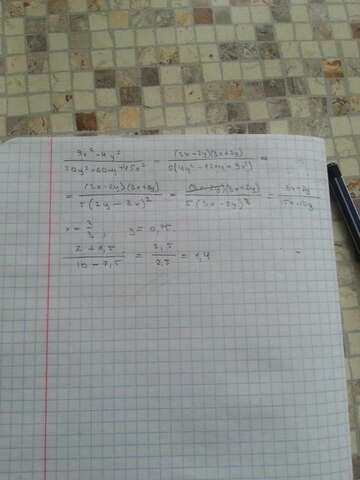 9x² - 4y² / 20y² - 60xy + 45x² = (3x-2y)(3x+2y) / 5(4y² - 12xy + 9x²) =
= (3x-2y)(3x+2y) / 5(2y - 3x)² = (3x-2y)(3x+2y) / 5(3x - 2y)² = 3x+2y / 15x-10y
x = 2/3 ; y = 0,75.
2 + 1,5 / 10 - 7,5 = 3,5 / 2,5 = 1,4